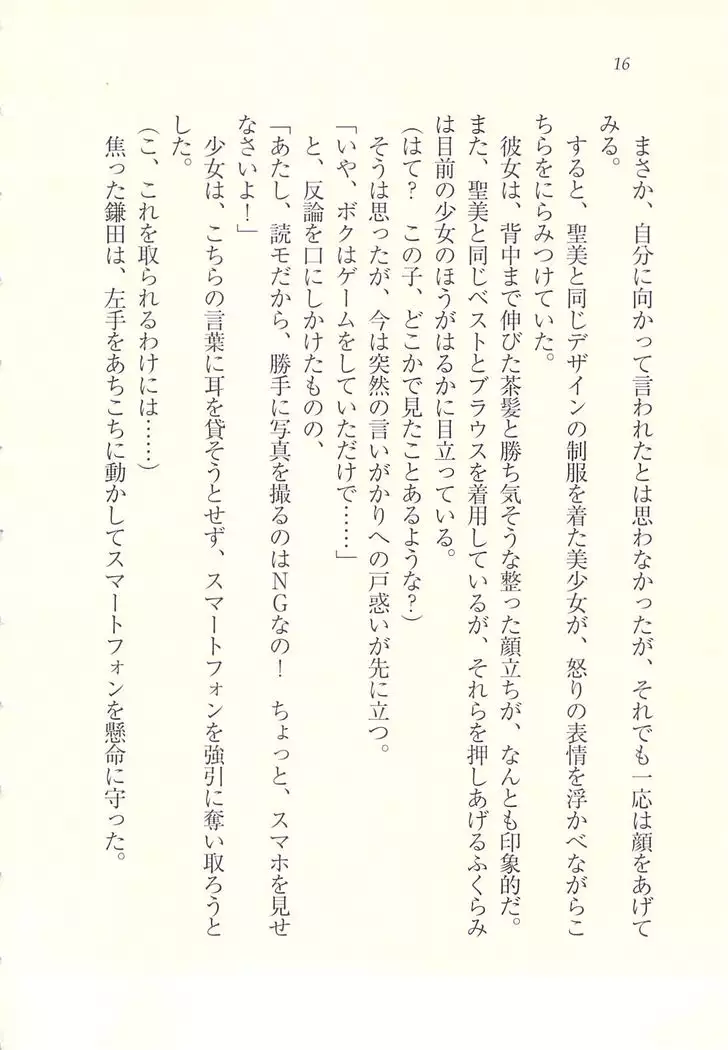 16
まさか、自分に向かって言われたとは思わなかったが、それでも一応は顔をあげて
みる。
すると、聖美と同じデザインの制服を着た美少女が、怒りの表情を浮かべながらこ
ちらをにらみつけていた。
彼女は、背中まで伸びた茶髪と勝ち気そうな整った顔立ちが、なんとも印象的だ。
また、聖美と同じベストとブラウスを着用しているが、それらを押しあげるふくらみ
は目前の少女のほうがはるかに目立っている。
(はて?　この子、どこかで見たことあるような?)
そうは思ったが、今は突然の言いがかりへの戸惑いが先に立つ。
「いや、ボクはゲームをしていただけで……」
と、反論を口にしかけたものの、
「あたし、読モだから、勝手に写真を撮るのはNGなの!　ちょっと、スマホを見せ
なさいよ!」
少女は、こちらの言葉に耳を貸そうとせず、スマートフォンを強引に奪い取ろうと
した。
(こ、これを取られるわけには……)
焦った鎌田は、左手をあちこちに動かしてスマートフォンを懸命に守った。